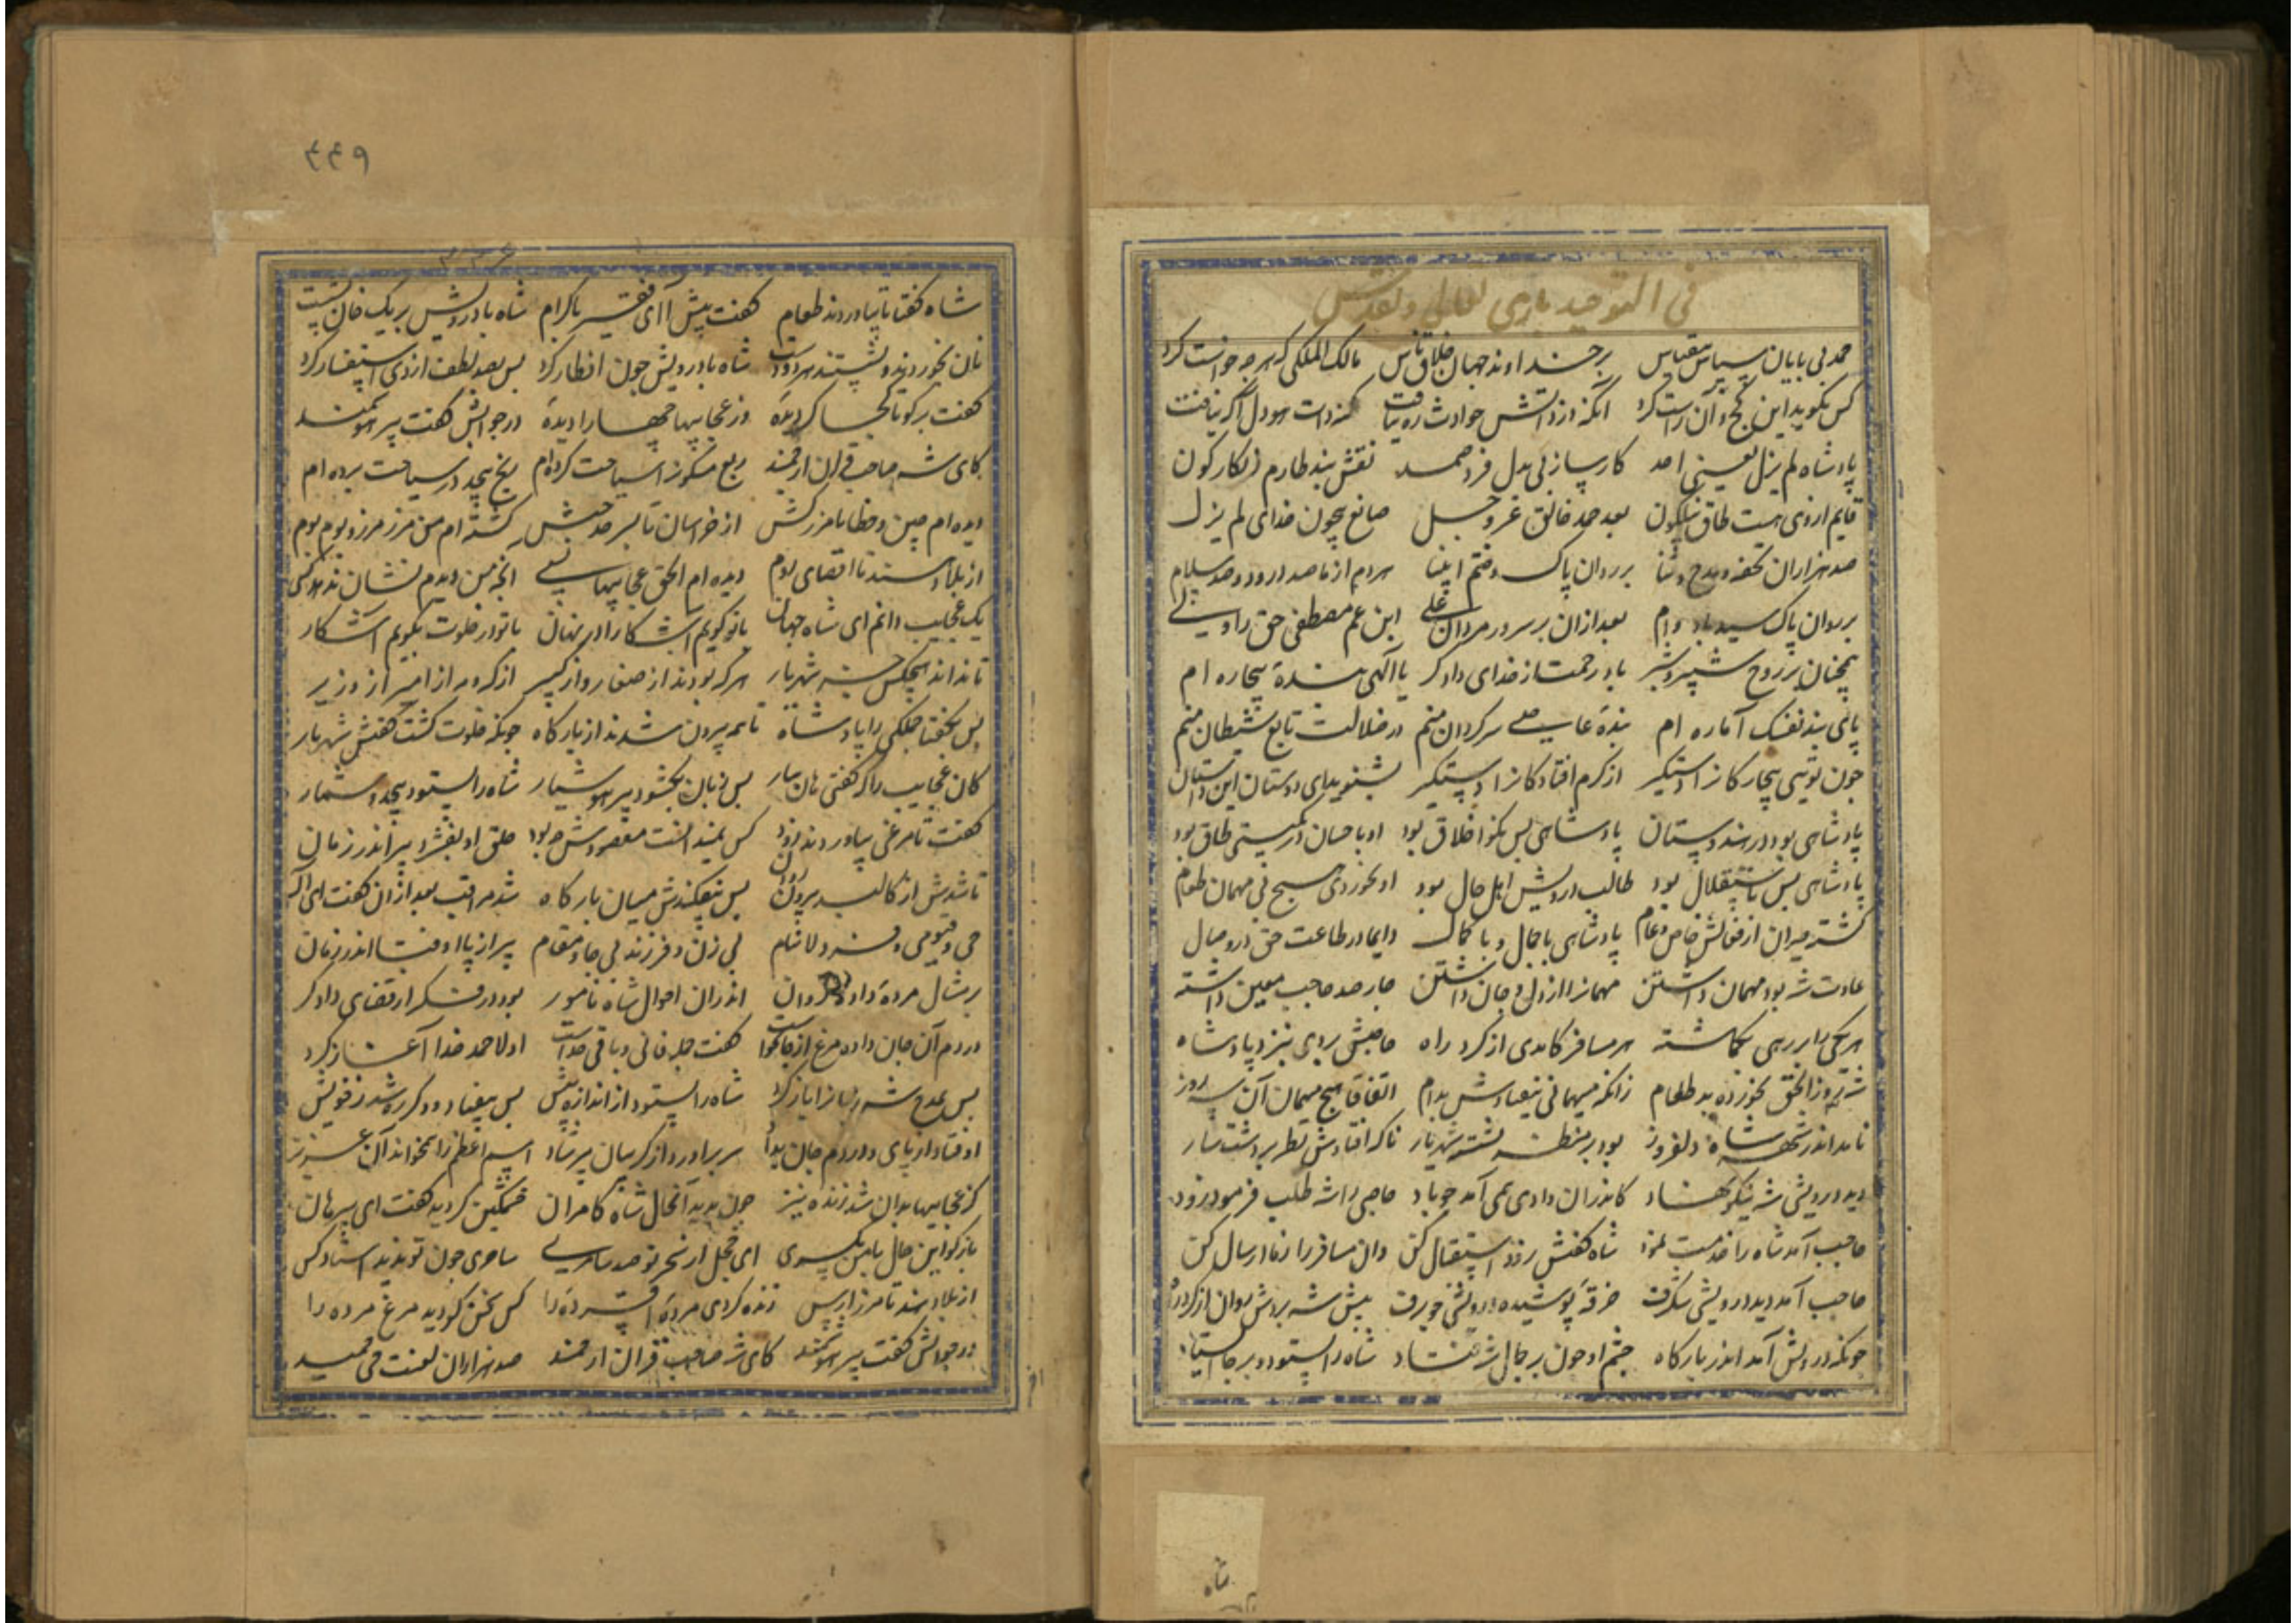 فی التوحید باری تعالی و تقدس
حمد بی پایان سپاس بیقیاس بر خداوند جهان خلاق ناس مالک الملکی که هر چه خواست کرد
کس نگوید این کج و آن راست کرد آنکه در ذاتش حوادث ره نیافت کنه ذات او دل آگه نیافت
پادشاه لم یزل یعنی احد کارساز بی بدل فرد صمد نقش بند طارم زنگارگون
قایم از وی هست طاق نیلگون بعد حمد خالق عز و جل صانع بیچون خدای لم یزل
صد هزاران تحفه و مدح و ثنا بر روان پاک ختم انبیا هر دم از ما صد درود و صد سلام
بر روان پاک سید باد وام بعد ازان بر سرور مردان علی ابن عم مصطفی حق را ولی
همچنان بر روح شبیر و شبر باد رحمت از خدای دادگر یا الهی بنده بیچاره ام
پای بند نفسک اماره ام بنده عاصی سرگردان منم در ضلالت تابع شیطان منم
چون تویی بیچارگانرا دستگیر از کرم افتادگانرا دستگیر بشنوید ای دوستان این داستان
پادشاهی بود در هندوستان پادشاهی بس نکو اخلاق بود او باحسان در گیتی طاق بود
پادشاهی بس باستقلال بود طالب درویش اهل حال بود او نخوردی هیچ بی مهمان طعام
گشته حیران از فعالش خاص و عام پادشاهی با جمال و با کمال دایما در طاعت حق در وصال
عادت شه بود مهمان داشتن مهمانرا از دل و جان داشتن چارصد حاجب معین داشته
هر یکی را بر رهی بگماشته هر مسافر کامدی از گرد راه حاجبش بردی بنزد پادشاه
شه سه روز الحق نخورده بد طعام زانکه میهمانی نیفتادش بدام اتفاقا هیچ میهمان آن سه روز
نامد اندر شهر شاه دلفروز بود بر منظر نشسته شهریار ناگه افتادش نظر بر دشت سار
دید درویشی شه نیکو نهاد کاندران وادی همی آمد چو باد حاجبی را شه طلب فرمود زود
حاجب آمد شاه را خدمت نمود شاه گفتش رو استقبال کن وان مسافر را زما ارسال کن
حاجب آمد دید درویشی شگرف خرقه پوشیده درویشی چو برف پیش شه بردش روان از گرد راه
چونکه درویش آمد اندر بارگاه چشم او چون بر جمال شه فتاد شاه را بستود و بر جا ایستاد
شاه
۴۴۹
شاه گفتا تا بیاوردند طعام گفت پیش آ ای فقیر باکرام شاه با درویش بر یک خوان نشست
نان بخوردند و بشستند هر دو دست شاه با درویش چون افطار کرد پس بصد لطف از وی استفسار کرد
گفت برگو تا کجا گردیده وز عجایبها چها را دیده در جوابش گفت پیر هوشمند
کای شه صاحب قران ارجمند ربع مسکون را سیاحت کرده ام رنج بیحد در سیاحت برده ام
دیده ام چین و خطا با مرز کش از خراسان تا بسرحد حبش گشته ام من مرز مرز و بوم بوم
از بلاد هند تا اقصای روم دیده ام الحق عجایبها بسی آنچه من دیدم نشان ندهد کسی
یک عجایب دانم ای شاه جهان با تو گویم آشکارا در نهان با تو در خلوت بگویم آشکار
تا نداند هیچکس جز شهریار هر که بودند از صغار و از کبیر از گروه از امیر از وزیر
پس بگفتا جملگی را پادشاه تا همه بیرون شدند از بارگاه چونکه خلوت گشت گفتش شهریار
کان عجایب را که گفتی هان بیار پس زبان بگشود پیر هوشیار شاه را بستود بیحد و شمار
گفت تا مرغی بیاوردند زود کس نمیدانست مقصودش چه بود حلق او بفشرد پیر اندر زمان
تا شدش از کالبد بیرون روان پس بیفکندش میان بارگاه شد مراقب بعد ازان گفت ای اله
حی و قیومی و فرد لاینام بی زن و فرزند بی جا و مقام پیر از پا اوفتاد اندر زمان
بر مثال مرده داده روان اندران احوال شاه نامور بود در فکر از قضای دادگر
در دم آن جان داده مرغ از جا بخواست گفت جمله فانی و باقی خداست اولا حمد خدا آغاز کرد
پس بمدح شه زبانرا باز کرد شاه را بستود از اندازه بیش پس بیفتاد و دگر ره شد ز خویش
او فتاد از پای و در دم جان بداد سر برآورد از گریبان پیر شاد اسم اعظم را بخواند آن عزیز
کز عجایبها بدان شد زنده نیز چون بدید آنحال شاه کامران خشمگین گردید گفت ای پیر هان
بازگو این حال با من یکسری ای خجل از سحر تو صد سامری ساحری چون تو ندید استاد کس
از بلاد هند تا مرز ارس زنده کردی مرده افسرده را کس بخس گردید مرغ مرده را
در جوابش گفت پیر هوشمند کای شه صاحب قران ارجمند صد هزاران لعنت حی مجید